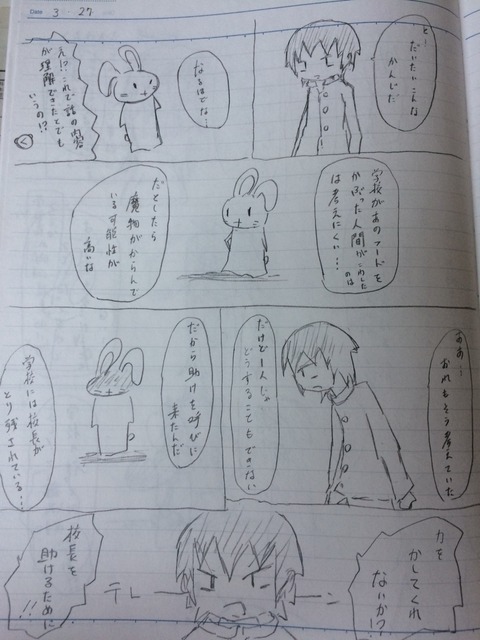 Date 3・27
と…
だいたいこんな
かんじだ
なるほどな…
え!?これで話の内容
が理解できたとでも
いうの!?
学校があのフードを
かぶった人間がこわした
のは
は考えにくい…
だとしたら
魔物がからんで
いる可能性が
高いな
ああ…
おれもそう考えていた
だけど一人じゃ
どうすることもできない
だから助けを呼びに
来たんだ
学校には校長が
とり残されている…
力を
かしてくれ
ないか!?
テレーン
校長を
助けるために
!!